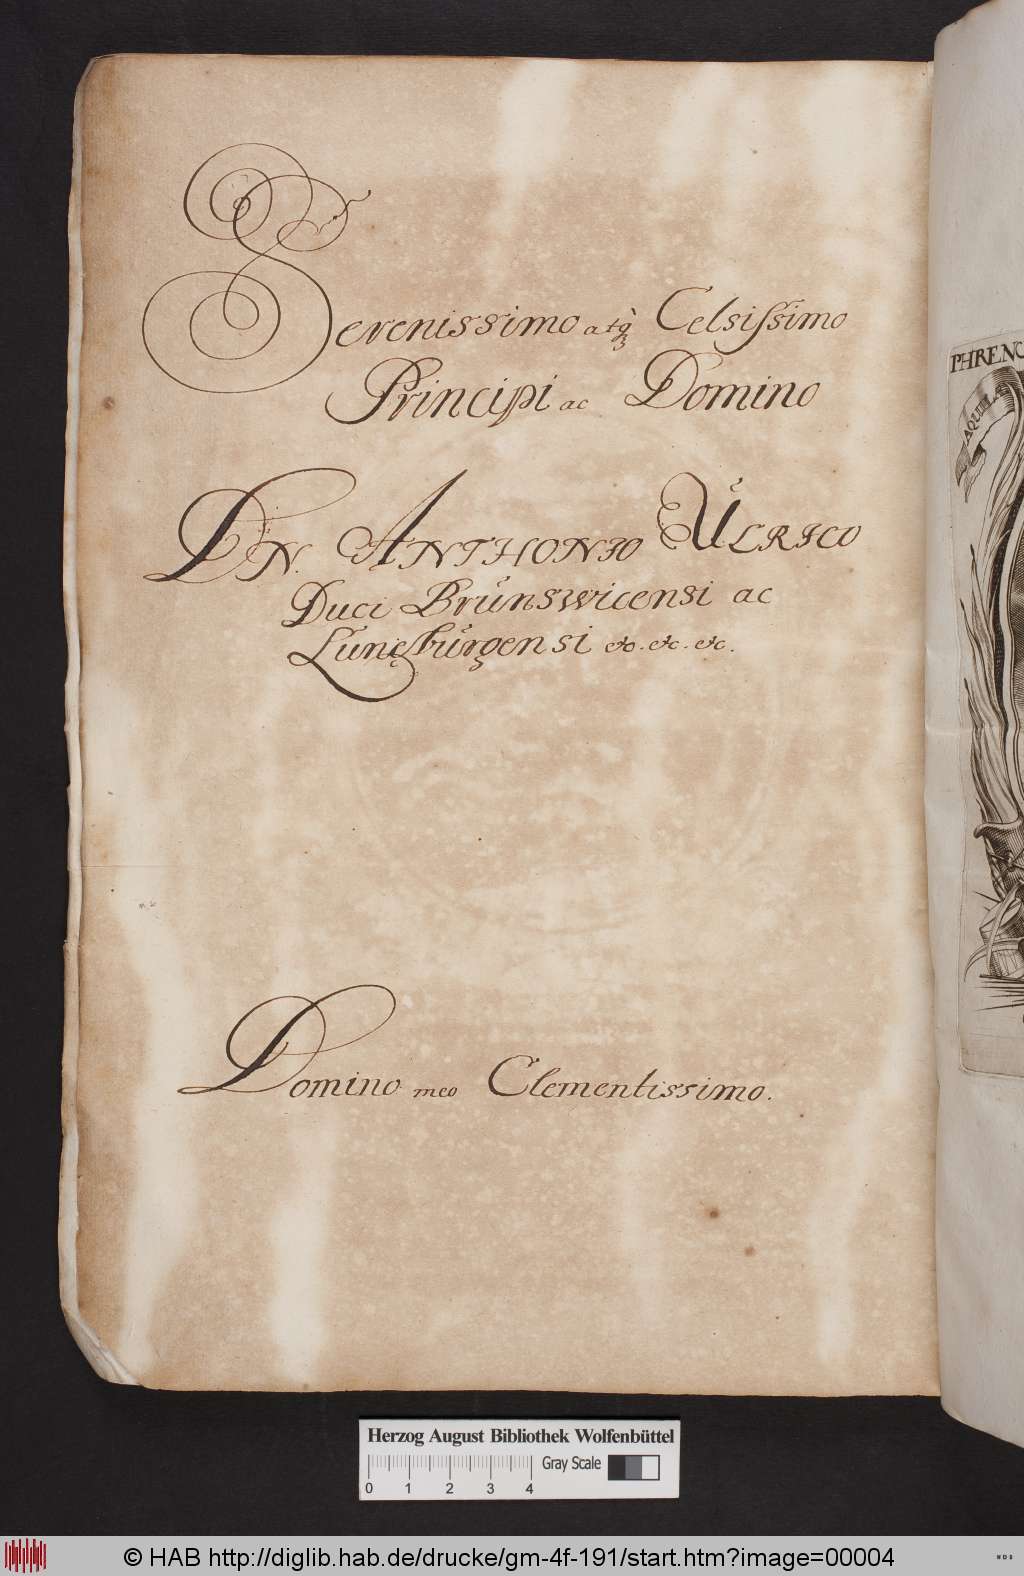 Serenissimo atq́ꝫ Celsissimo
Principi ac Domino
DN. ANTHONIO ULRICO
Duci Brunswicensi ac
Luneburgensi etc. etc. etc.
Domino meo Clementissimo.
PHRENO
AQUILA
Herzog August Bibliothek Wolfenbüttel
0 1 2 3 4
Gray Scale
© HAB http://diglib.hab.de/drucke/gm-4f-191/start.htm?image=00004